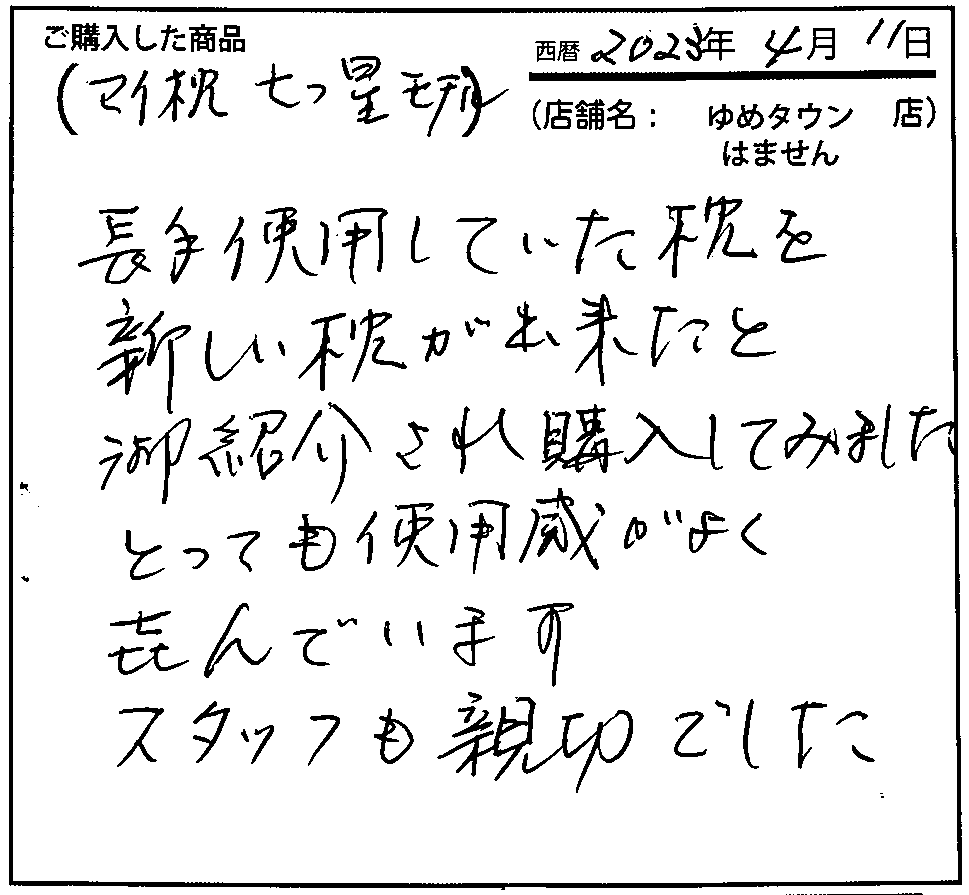 ご購入した商品
西暦 2023年 4月 11日
(マイ枕 七つ星モデル)
(店舗名： ゆめタウン 店)
はません
長年使用していた枕を
新しい枕が出来たと
御紹介され購入してみました
とっても使用感がよく
㐂んでいます
スタッフも親切でした